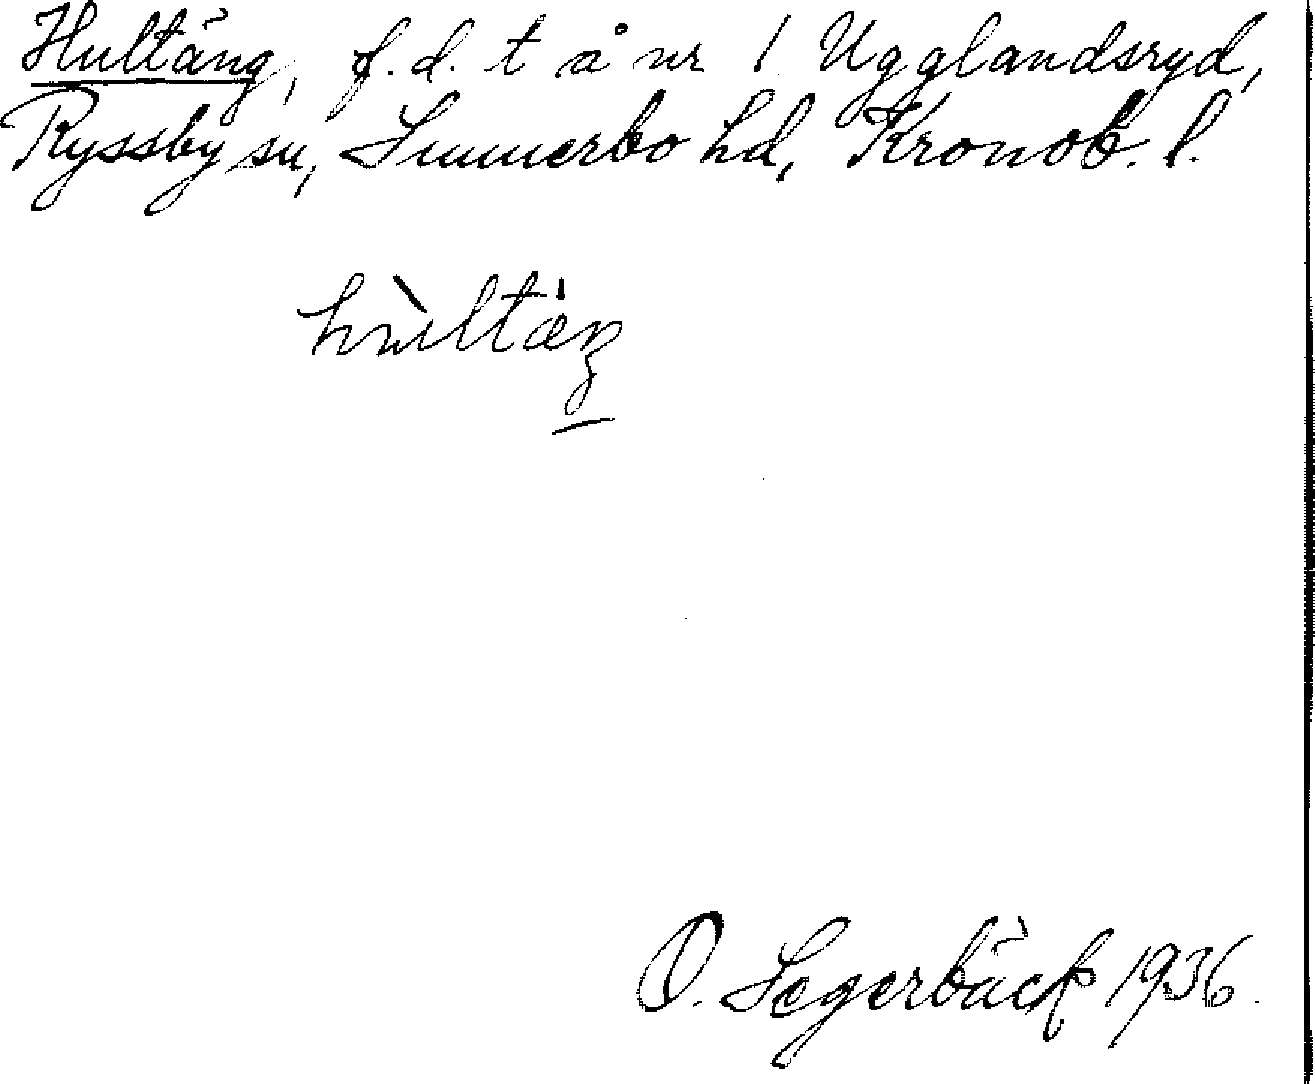 Hultäng, f.d. t å nr 1 Ugglandsryd,
Ryssby sn, Sunnerbo hd, Kronob. l.
hùltæŋ
O. Segerbäck 1936.